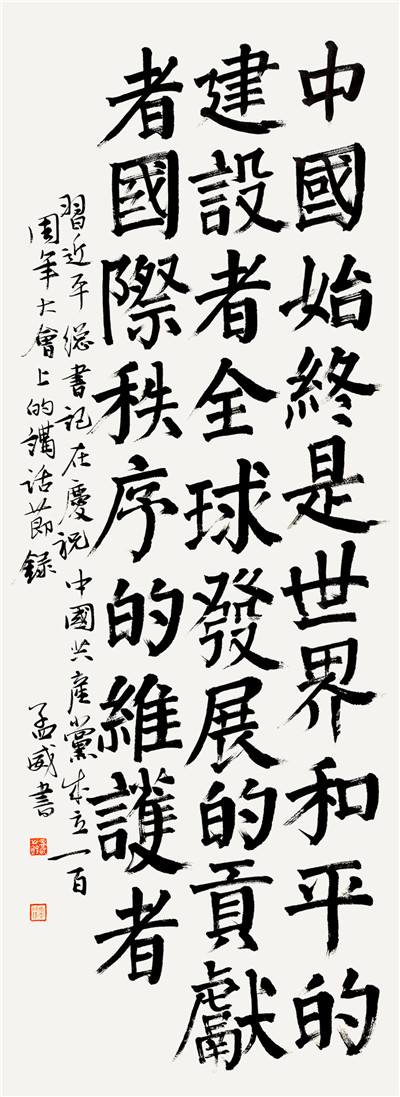 中國始終是世界和平的
建設者全球發展的貢獻
者國際秩序的維護者
習近平總書記在慶祝中國共產黨成立一百
周年大會上的講話節錄
孟威書